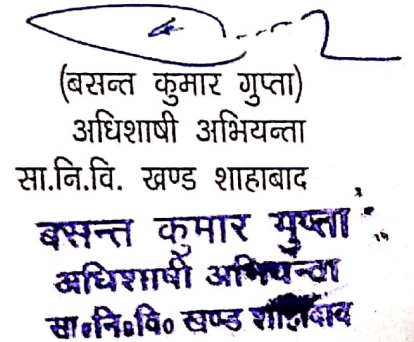 (बसन्त कुमार गुप्ता)
अधिशाषी अभियन्ता
सा.नि.वि. खण्ड शाहाबाद
बसन्त कुमार गुप्ता
अधिशाषी अभियन्ता
सा०नि०वि० खण्ड शाहाबाद